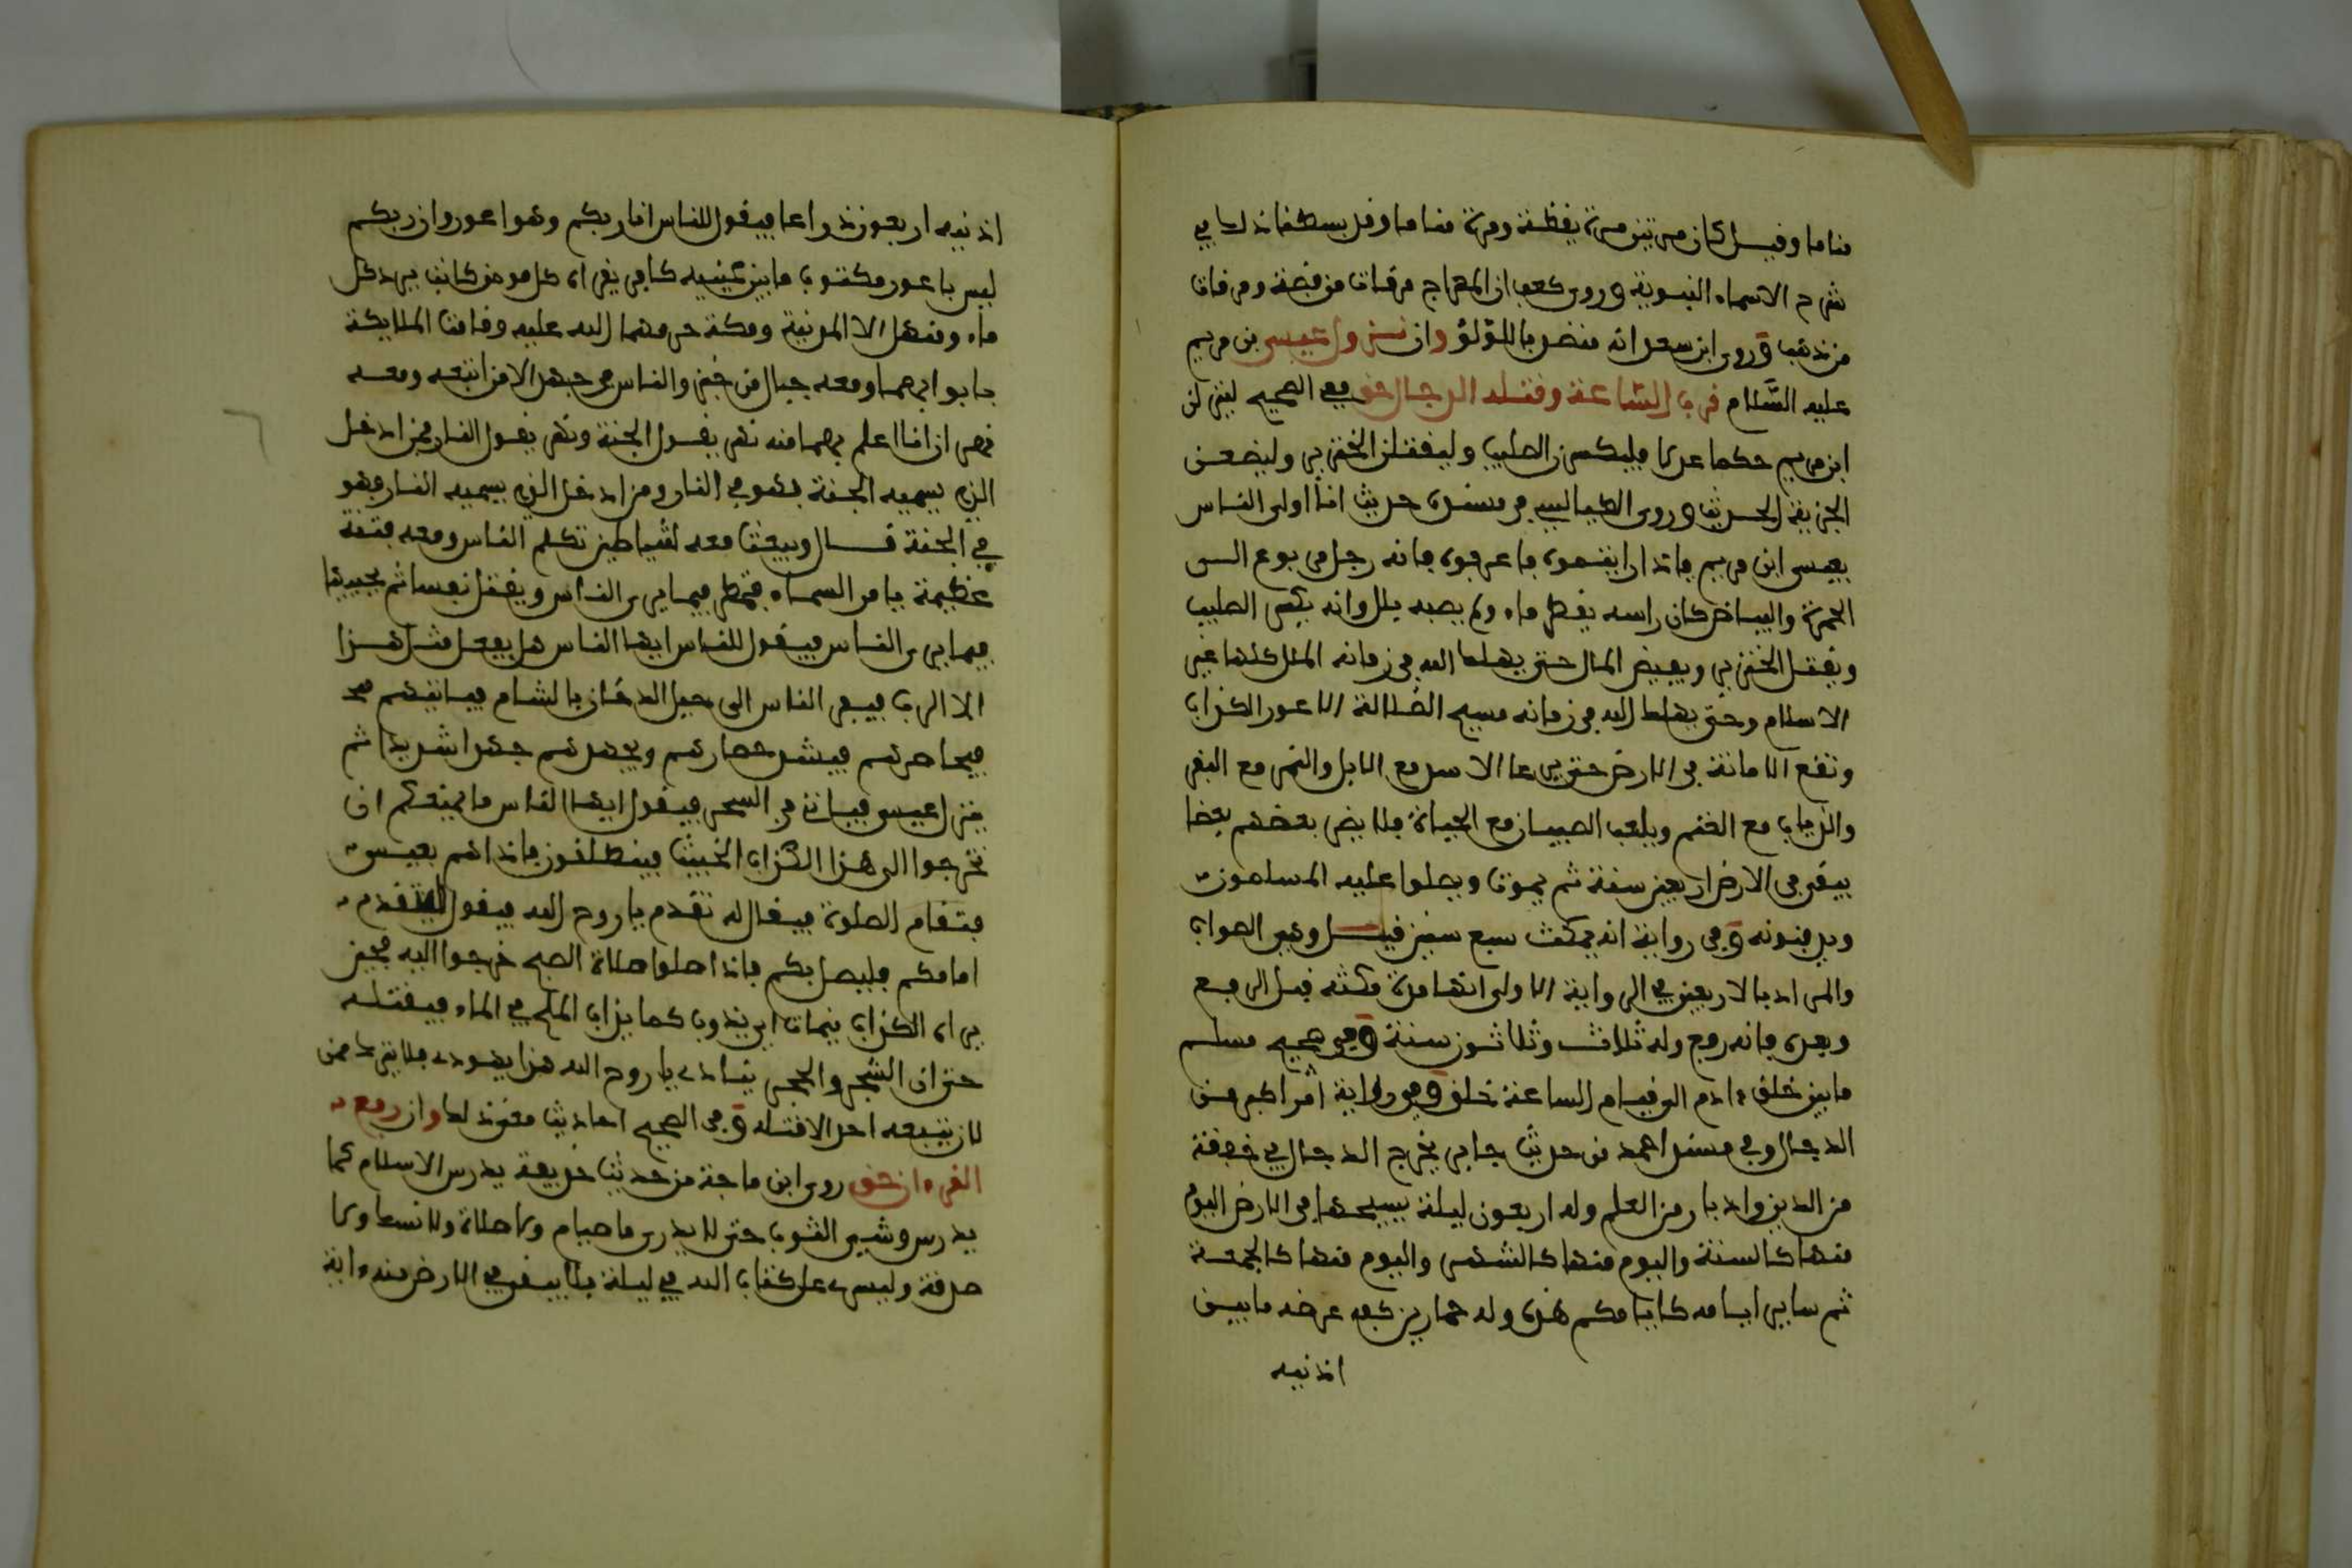 مناما وقيل كان مرتين مرة يقظة ومرة مناما وقد بسطنا ذلك في
شرح الاسماء النبوية وروى كعب ان المعراج مرقات من فضة ومرقات
من ذهب وروى ابن سعد انه منضد باللؤلؤ وان نزول عيسى بن مريم
عليه السلام قرب الساعة وقتله الدجال حق ففي الصحيح لينزلن
ابن مريم حكما عدلا فليكسرن الصليب وليقتلن الخنزير وليضعن
الجزية الحديث وروى الطيالسي في مسنده حديث انا اولى الناس
بعيسى ابن مريم فاذا رايتموه فاعرفوه فانه رجل مربوع الى
الحمرة والبياض كان راسه يقطر ماء ولم يصبه بلل وانه يكسر الصليب
ويقتل الخنزير ويفيض المال حتى يهلك الله في زمانه الملل كلها غير
الاسلام وحتى يهلك الله في زمانه مسيح الضلالة الاعور الكذاب
وتقع الامانة في الارض حتى يرعا الاسد مع الابل والنمر مع البقر
والذياب مع الغنم ويلعب الصبيان مع الحيات فلا يضر بعضهم بعضا
يبقى في الارض اربعين سنة ثم يموت ويصلوا عليه المسلمون
ويدفنونه وفي رواية انه يمكث سبع سنين قيل وهي الصواب
والمراد بالاربعين في الرواية الاولى انها مدة مكثه قبل الرفع
وبعده فانه رفع وله ثلاث وثلاثون سنة وفي صحيح مسلم
ما بين خلق ءادم الى قيام الساعة خلق وفي رواية امر اكبر من
الدجال وفي مسند احمد من حديث جابر يخرج الدجال في خفقة
من الدين وادبار من العلم وله اربعون ليلة يسيحها في الارض اليوم
منها كالسنة واليوم منها كالشهر واليوم منها كالجمعة
ثم ساير ايامه كايامكم هذه وله حمار يركبه عرض ما بين
اذنيه
اذنيه اربعون ذراعا فيقول للناس انا ربكم وهو اعور وان ربكم
ليس باعور مكتوب ما بين عينيه كافر يقراه كل مومن كاتب يرد كل
ماء ومنهل الا المدينة ومكة حرمهما الله عليه وقامت الملايكة
بابوابهما ومعه جبال من خبز والناس في جهد الا من اتبعه ومعه
نهران انا اعلم بهما منه نهر يقول الجنة ونهر يقول النار فمن ادخل
الذي يسميه الجنة فهو في النار ومن ادخل الذي يسميه النار فهو
في الجنة قال ويبعث معه شياطين تكلم الناس ومعه فتنة
عظيمة يامر السماء فتمطر فيما يرى الناس ويقتل نفسا ثم يحييها
فيما يرى الناس فيقول للناس ايها الناس هل يفعل مثل هذا
الا الرب فيفر الناس الى جبل الدخان بالشام فياتيهم
فيحاصرهم فيشد حصارهم ويجهدهم جهدا شديدا ثم
ينزل عيسى فياتي في السحر فيقول ايها الناس ما يمنعكم ان
تخرجوا الى هذا الكذاب الخبيث فينطلقون فاذا هم بعيسى
فتقام الصلوة فيقال له تقدم يا روح الله فيقول ليتقدم
امامكم فليصل بكم فاذا صلوا صلاة الصبح خرجوا اليه فحين
يراه الكذاب ينماث اي يذوب كما يذاب الملح في الماء فيقتله
حتى ان الشجر والحجر ينادي يا روح الله هذا يهودي فلا يترك ممن
كان يتبعه احد الا قتله وفي الصحيح احاديث معنى ذلك وان رفع
القرءان حق روى ابن ماجة من حديث حذيفة يدرس الاسلام كما
يدرس وشي الثوب حتى لا يدرى ما صيام ولا صلاة ولا نسك ولا
صدقة وليسرى على كتاب الله في ليلة فلا يبقى في الارض منه ءاية